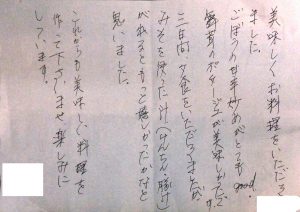 美味しくお料理をいただき
ました。
ごぼうの甘辛炒めがとても good!
舞茸のポタージュが美味しかったです。
三日間、夕食をいただきましたが
みそを使った汁(けんちん・豚汁)
があるともっと嬉しかったかなと
思いました。
これからも美味しい料理を
作って下さいませ 楽しみに
しています。